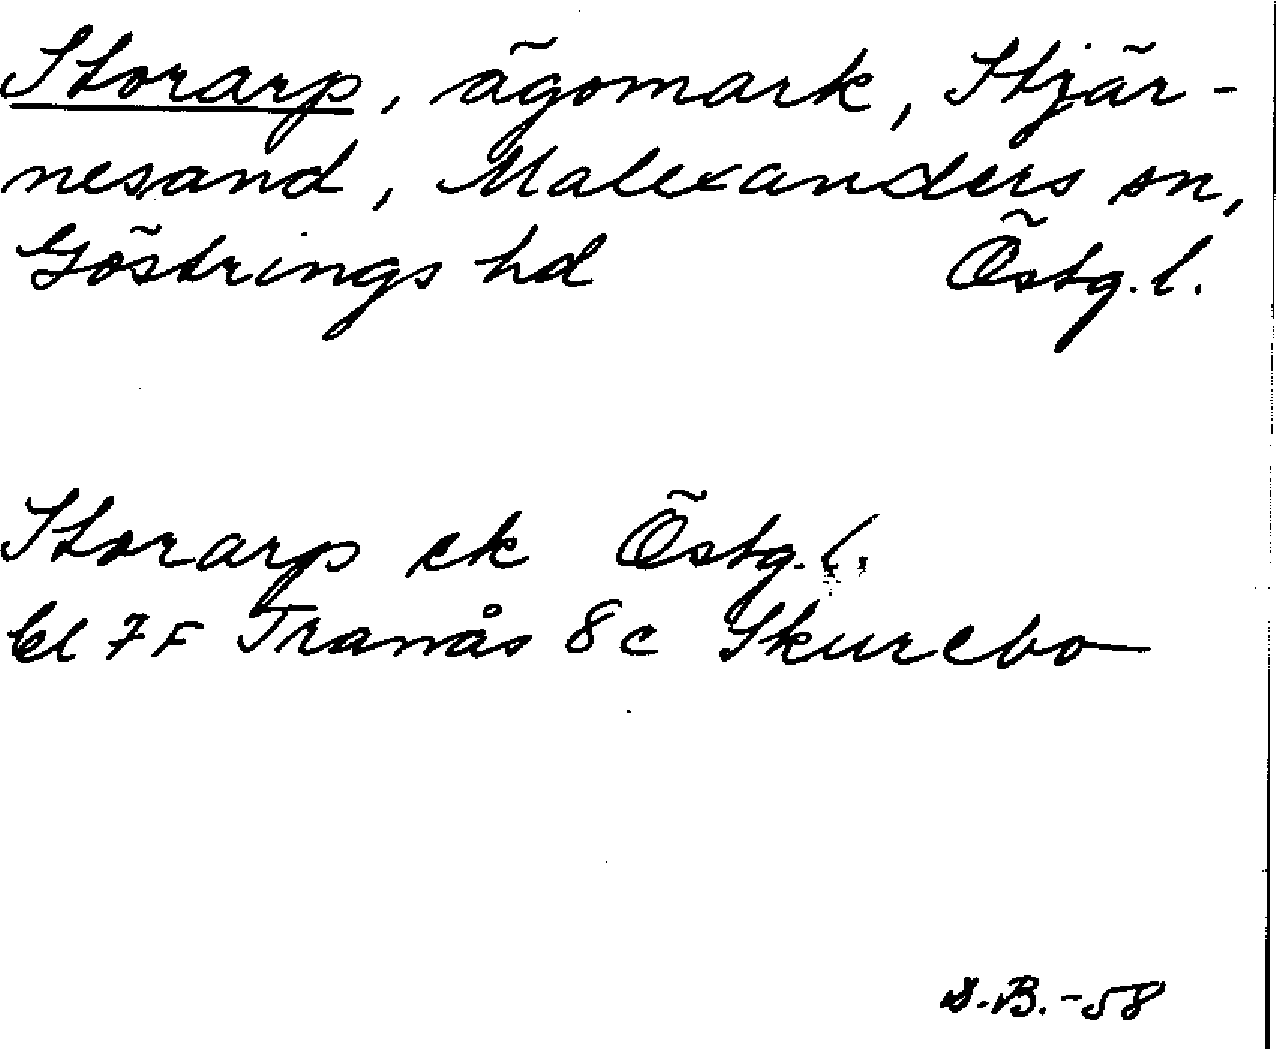 Storarp, ägomark, Stjär-
nesand, Malexanders sn,
Göstrings hd Östg. l.
Storarp ek Östg. l.
bl 7F Tranås 8c Skurebo
S.B.-58